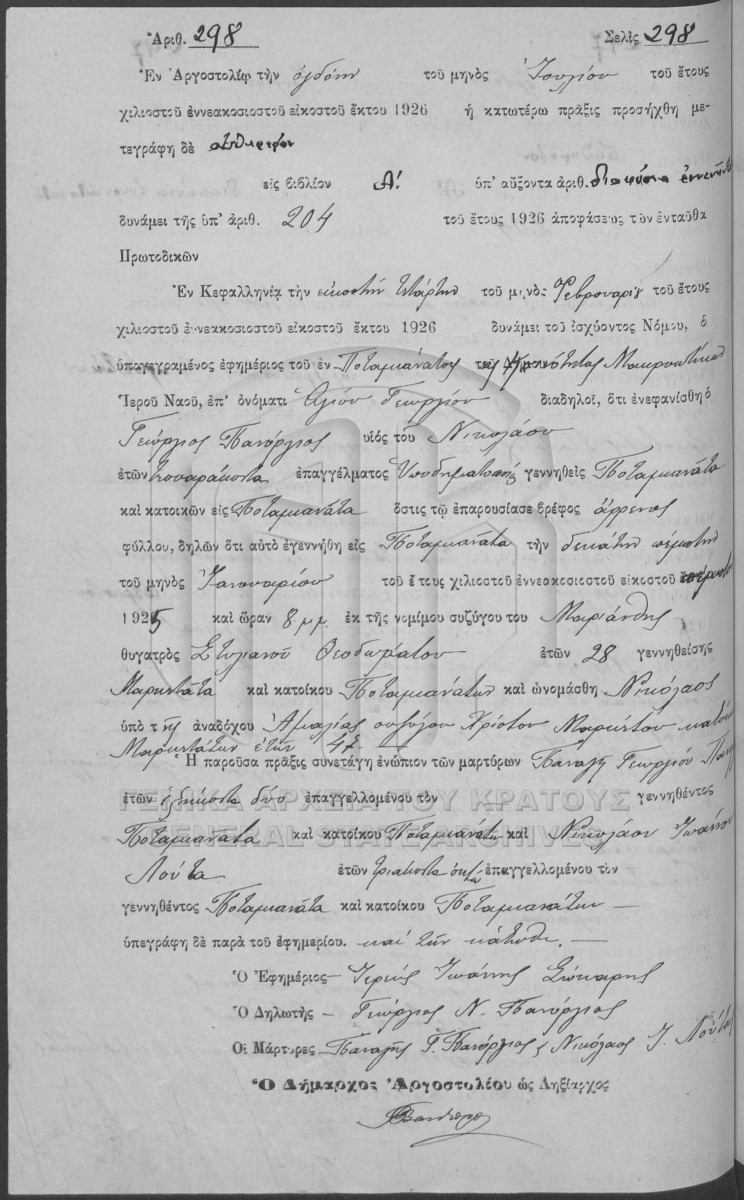 Ἀριθ. 298 Σελὶς 298
Ἐν Ἀργοστολίῳ τὴν ὀγδόην τοῦ μηνὸς Ἰουλίου τοῦ ἔτους
χιλιοστοῦ ἐννεακοσιοστοῦ εἰκοστοῦ ἕκτου 1926 ἡ κατωτέρω πρᾶξις προσήχθη με-
τεγράφη δὲ αὐθημερὸν
εἰς βιβλίον Α΄. ὑπ' αὔξοντα ἀριθ. διακόσια ἐνενήντα
δυνάμει τῆς ὑπ' ἀριθ. 204 τοῦ ἔτους 1926 ἀποφάσεως τῶν ἐνταῦθα
Πρωτοδικῶν
Ἐν Κεφαλληνίᾳ τὴν εἰκοστὴν τετάρτην τοῦ μηνὸς Φεβρουαρίου τοῦ ἔτους
χιλιοστοῦ ἐννεακοσιοστοῦ εἰκοστοῦ ἕκτου 1926 δυνάμει τοῦ ἰσχύοντος Νόμου, ὁ
ὑπογεγραμένος ἐφημέριος τοῦ ἐν Ποταμιανάτος τῆς Κοινότητος
Ἱεροῦ Ναοῦ, ἐπ' ὀνόματι Ἁγίου Γεωργίου διαδηλοῖ, ὅτι ἐνεφανίσθη ὁ
Γεώργιος Πανόργιος υἱὸς τοῦ Νικολάου
ἐτῶν τεσσαράκοντα ἐπαγγέλματος Ὑποδηματοποιὸς γεννηθεὶς Ποταμιανάτα
καὶ κατοικῶν εἰς Ποταμιανάτα ὅστις τῷ ἐπαρουσίασε βρέφος ἄρρενος
φύλλου, δηλῶν ὅτι αὐτὸ ἐγεννήθη εἰς Ποταμιανάτα τὴν δεκάτην πέμπτην
τοῦ μηνὸς Ἰανουαρίου τοῦ ἔτους χιλιοστοῦ ἐννεοκοσιοστοῦ εἰκοστοῦ πέμπτου
1925 καὶ ὥραν 8 μμ ἐκ τῆς νομίμου συζύγου του Μαριάνθης
θυγατρὸς Στυλιανοῦ Θεοδωράτου ἐτῶν 28 γεννηθείσης
Μαρκετάτα καὶ κατοίκου Ποταμιανάτων καὶ ὠνομάσθη Νικόλαος
ὑπὸ τῆς ἀναδόχου Ἀμαλίας συζύγου Χρίστου Μαρκέτου κατοίκου
Μαρκετάτων ἐτῶν
Ἡ παροῦσα πρᾶξις συνετάγη ἐνώπιον τῶν μαρτύρων Παναγῆ Γεωργίου
ἐτῶν ἑξήκοντα δύο ἐπαγγελλομένου τὸν γεννηθέντος
ΓΕΝΙΚΑ ΑΡΧΕΙΑ ΤΟΥ ΚΡΑΤΟΥΣ
GENERAL STATE ARCHIVES
Ποταμιανάτα καὶ κατοίκου Ποταμιανάτων καὶ Νικολάου Ἰωάννου
Λούτα ἐτῶν τριάκοντα ὀκτὼ ἐπαγγελλομένου τὸν
γεννηθέντος Ποταμιανάτα καὶ κατοίκου Ποταμιανάτων —
ὑπεγράφη δὲ παρὰ τοῦ ἐφημερίου. καὶ τῶν κάτωθι. —
Ὁ Ἐφημέριος — Ἱερεὺς Ἰωάννης
Ὁ Δηλωτὴς — Γεώργιος Ν. Πανόργιος
Οἱ Μάρτυρες — Παναγῆς Γ. Πανόργιος Νικόλαος Ι. Λούτας
Ὁ Δήμαρχος Ἀργοστολίου ὡς Ληξίαρχος